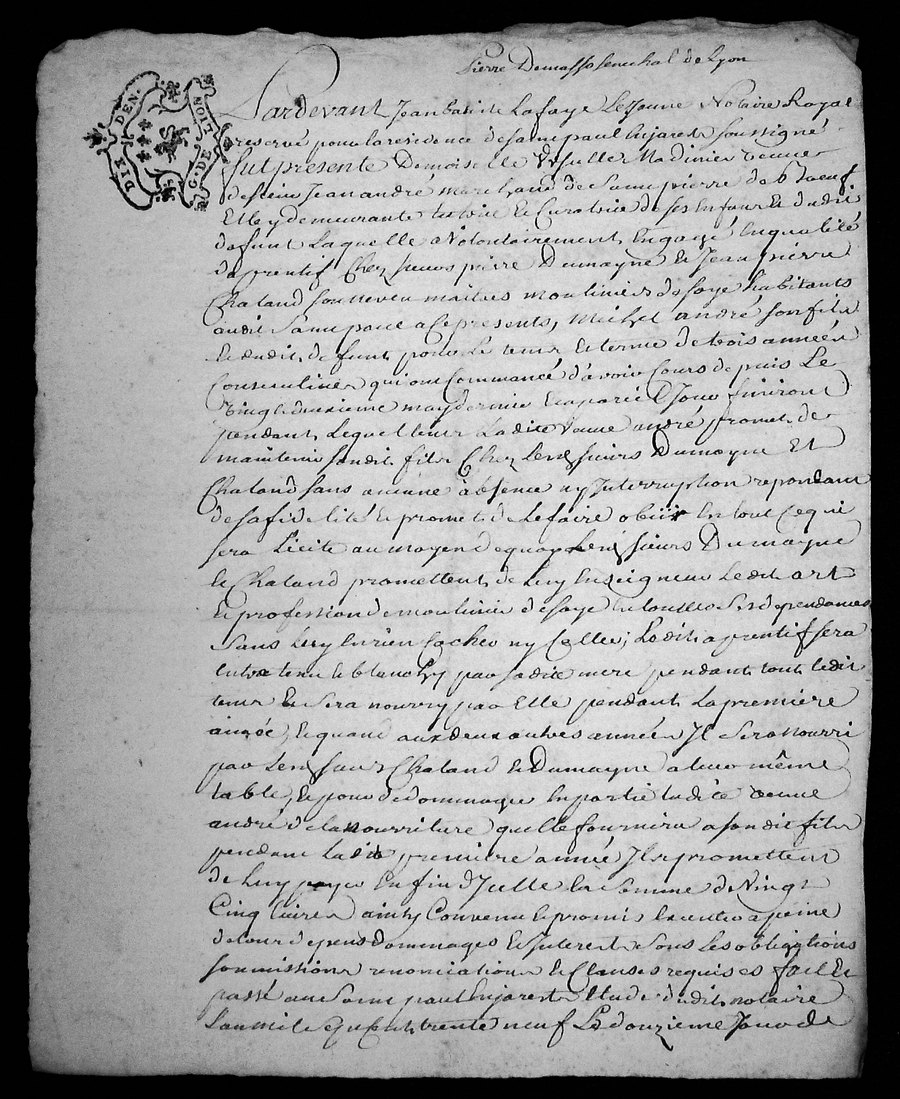 Pierre Demasso senechal de Lyon
DIX DEN. G. DE LION
Pardevant Jean batiste Lafaye Lejeune Notaire Royal
reservé pour la residence de saint paul Enjarest soussigné
fut presente Demoiselle Ursulle Madinier veuve
de sieur Jean andré marchand de Saint pierre de boeuf
Et y demeurante tutrice Et Curatrice de ses Enfans Et dudit
defunt Laquelle a Volontairement Engagé En qualité
d'aprentif Chez sieurs pierre Dumayne Et Jean pierre
Chaland son neveu maitres mouliniers de soye habitants
audit Saint paul a Ce presents, Michel andré son fils
Et dudit defunt pour Le tems Et terme de trois années
Consecutives qui ont Commancé d'avoir Cours depuis Le
vingt deuxieme may dernier Et a pareil Jour finiront
pendant Lequel tems Ladite veuve andré promet de
maintenir sondit fils Chez Lesd sieurs Dumayne Et
Chaland sans aucune absence ny Interruption repondant
de sa fidelité Et promet de Le faire obeir En tout Ce qui
sera Licite au moyen de quoy Lesd sieurs Dumayne
Et Chaland promettent de Luy Enseigner Ledit art
Et profession de moulinier de soye En toutes Ses dependances
Sans Luy En rien Cacher ny Celler; Ledit aprentif sera
entretenu Et blanchy par sadite mere pendant tout ledit
tems Et Sera nourry par Elle pendant La premiere
année, Et quand aux deux autres années Il Sera nourri
par Lesd sieurs Chaland Et Dumayne a leur même
table, Et pour dedommager En partie Ladite veuve
andré de la nourriture quelle fournira a sondit fils
pendant Ladite premiere année Ils promettent
de Luy payer En fin d'Icelle La somme de Vingt
Cinq Livres ainsy Convenu Et promis Executer a peine
de tous depens dommages Et Interests Sous Les obligations
soumissions renonciations Et Clauses requises fait Et
passé audit Saint paul Enjarest Etude dudit notaire
Lan mil sept cent trente neuf Le douzieme Jour de